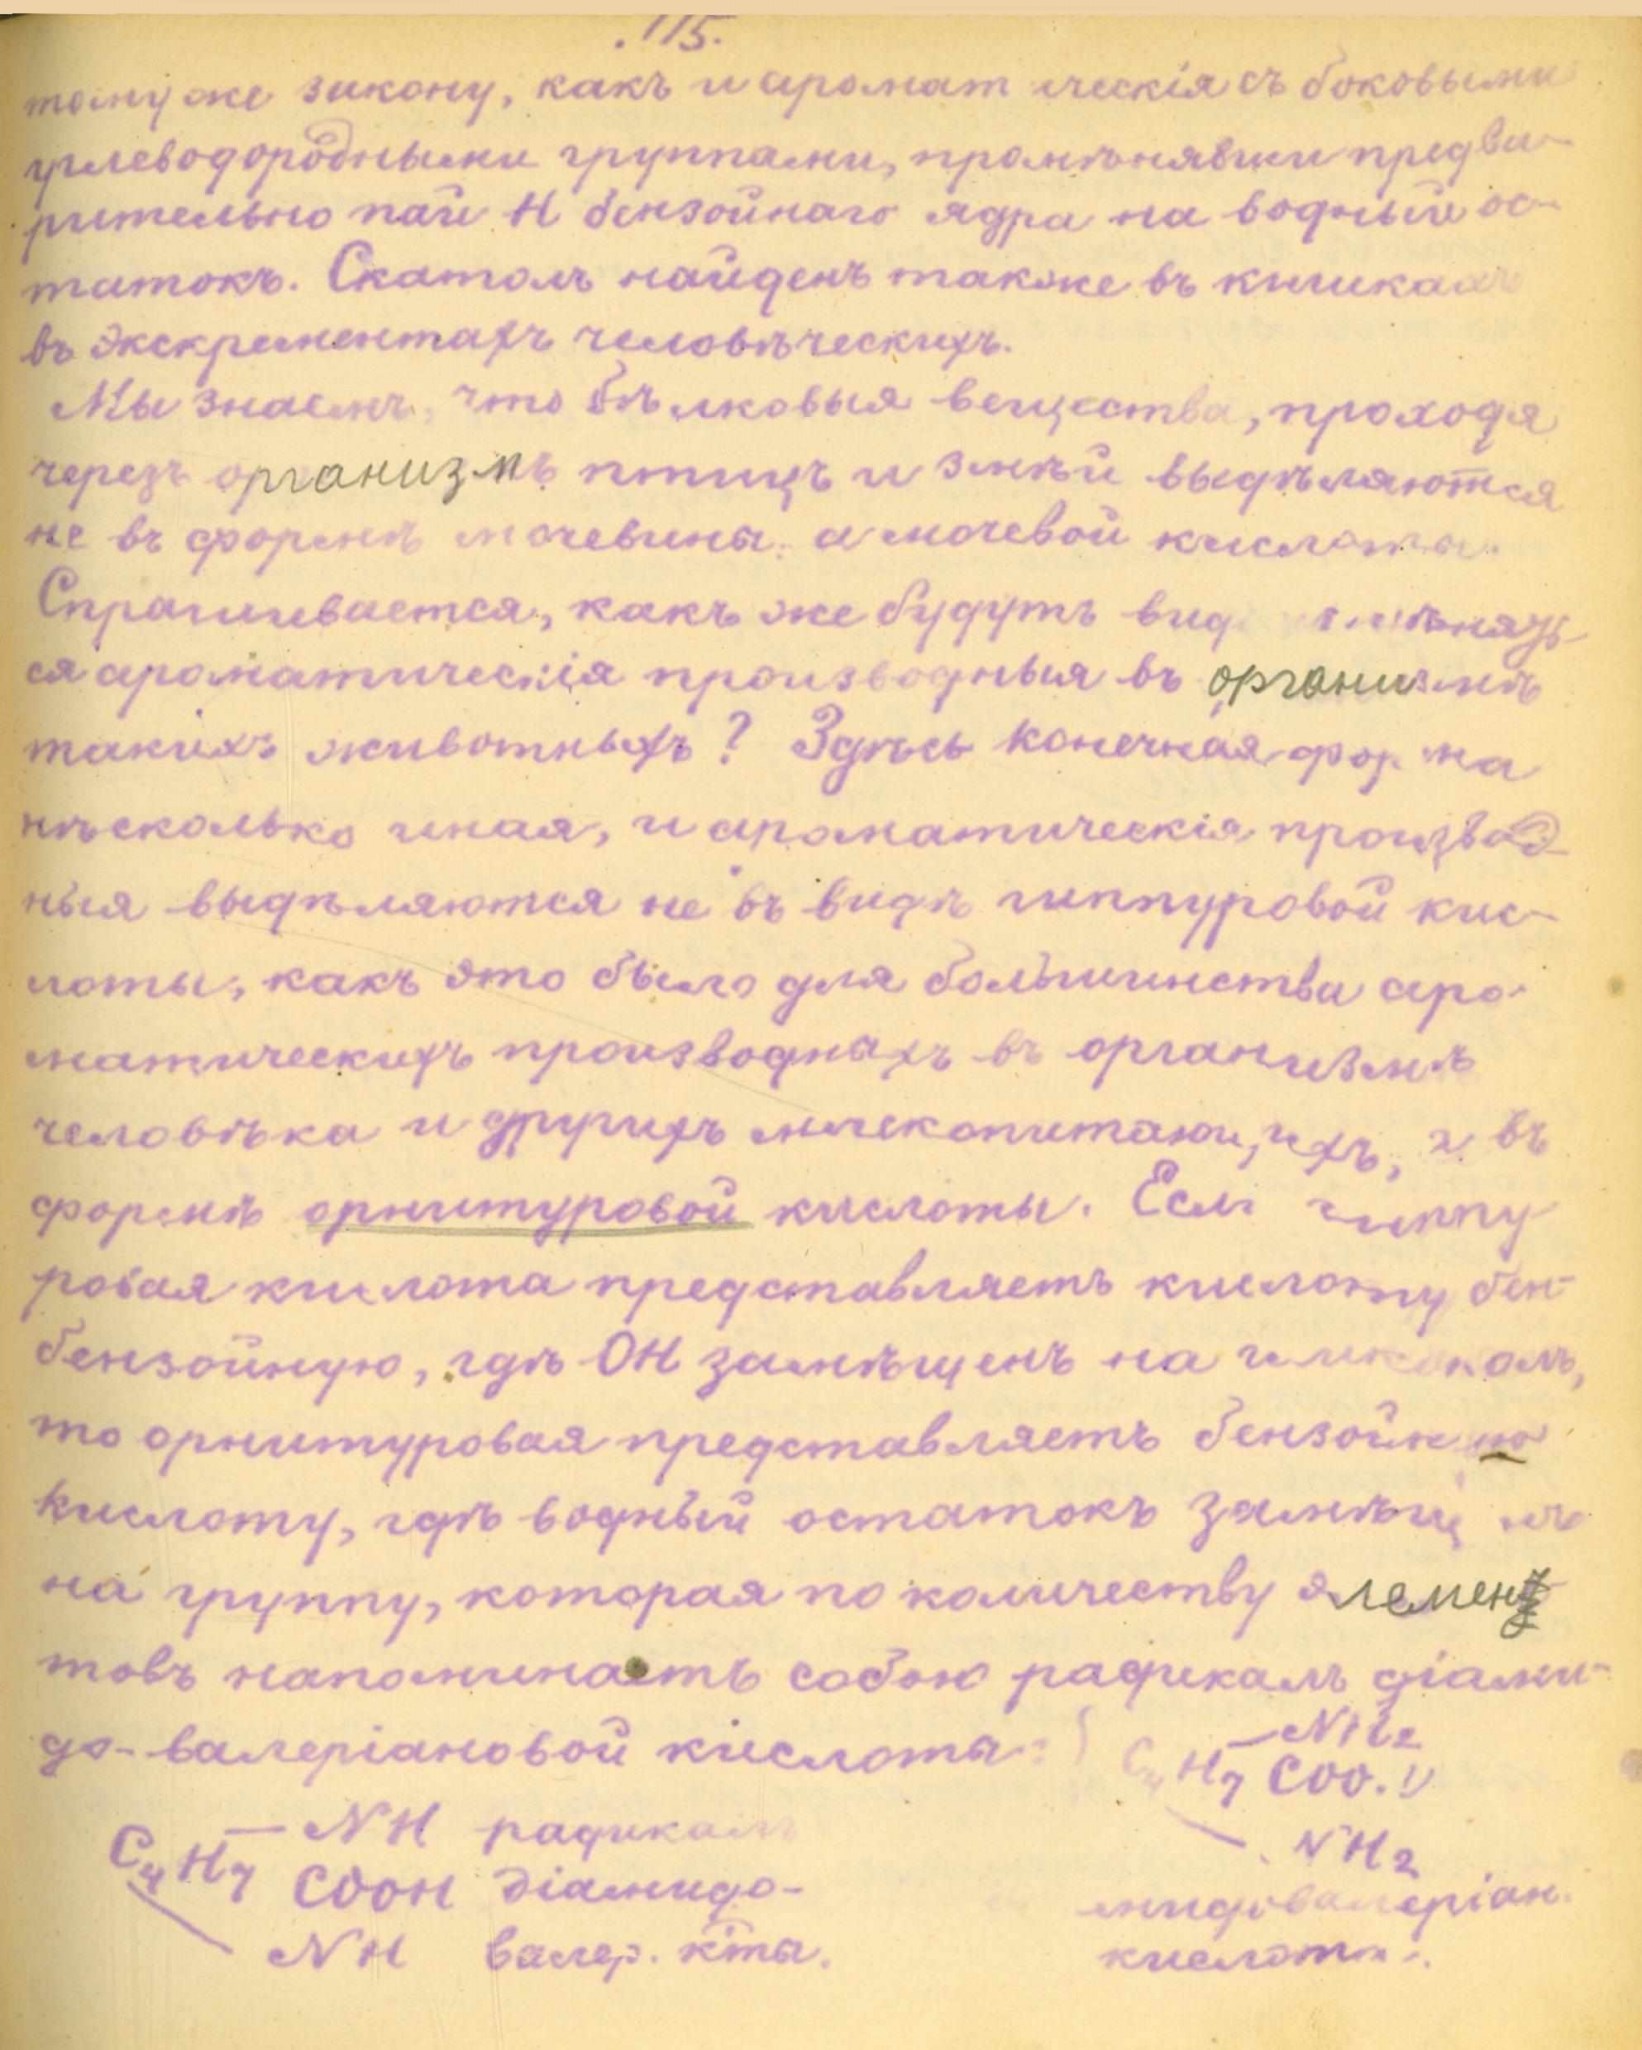 115.
тому же закону, какъ и аромат ическія съ боковыми
углеводородными группами, промѣнявши предва-
рительно пай Н бензойнаго ядра на водный ос-
татокъ. Скатолъ найденъ также въ кишкахъ
въ экскрементахъ человѣческихъ.
Мы знаемъ, что бѣлковыя вещества, проходя
черезъ организмъ птицъ и змѣй выдѣляются
не въ формѣ мочевины а мочевой кислоты.
Спрашивается, какъ же будутъ вид
ся ароматическія производныя въ организмѣ
такихъ животныхъ? Здѣсь конечная форма
нѣсколько иная, и ароматическія производ-
ныя выдѣляются не въ видѣ гиппуровой кис-
лоты, какъ это было для большинства аро-
матическихъ производныхъ въ организмѣ
человѣка и другихъ млекопитающихъ, а въ
формѣ орнитуровой кислоты. Если гиппу
ровая кислота представляетъ кислоту бен-
бензойную, гдѣ ОН замѣщенъ на гликоколь,
то орнитуровая представляетъ бензойную
кислоту, гдѣ водный остатокъ замѣщенъ
на группу, которая по количеству элемен
товъ напоминаетъ собою радикалъ діами-
до-валеріановой кислоты:
—NH2
C4H7 COO.
NH2
—NH радикалъ
C4H7 COOH діамидо-
NH валер. к̅ты.
мидовалеріан.
кислоты.